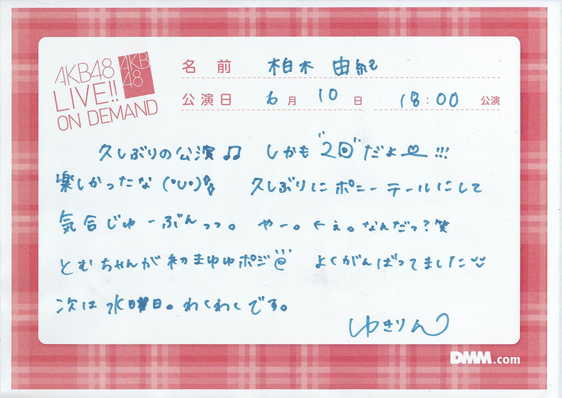 AKB48
LIVE!!
ON DEMAND
AKB
48
名前 柏木 由紀
公演日 6月10日 18:00 公演
久しぶりの公演♫ しかも"2回"だよ♡!!!
楽しかったな(•∪•) 久しぶりにポニーテールにして
気合じゅーぶんっっ。 やー。 なんだっ?笑
とむちゃんが初まゆゆポジ よくがんばってました
次は水曜日。わくわくです。
ゆきりん
DMM.com